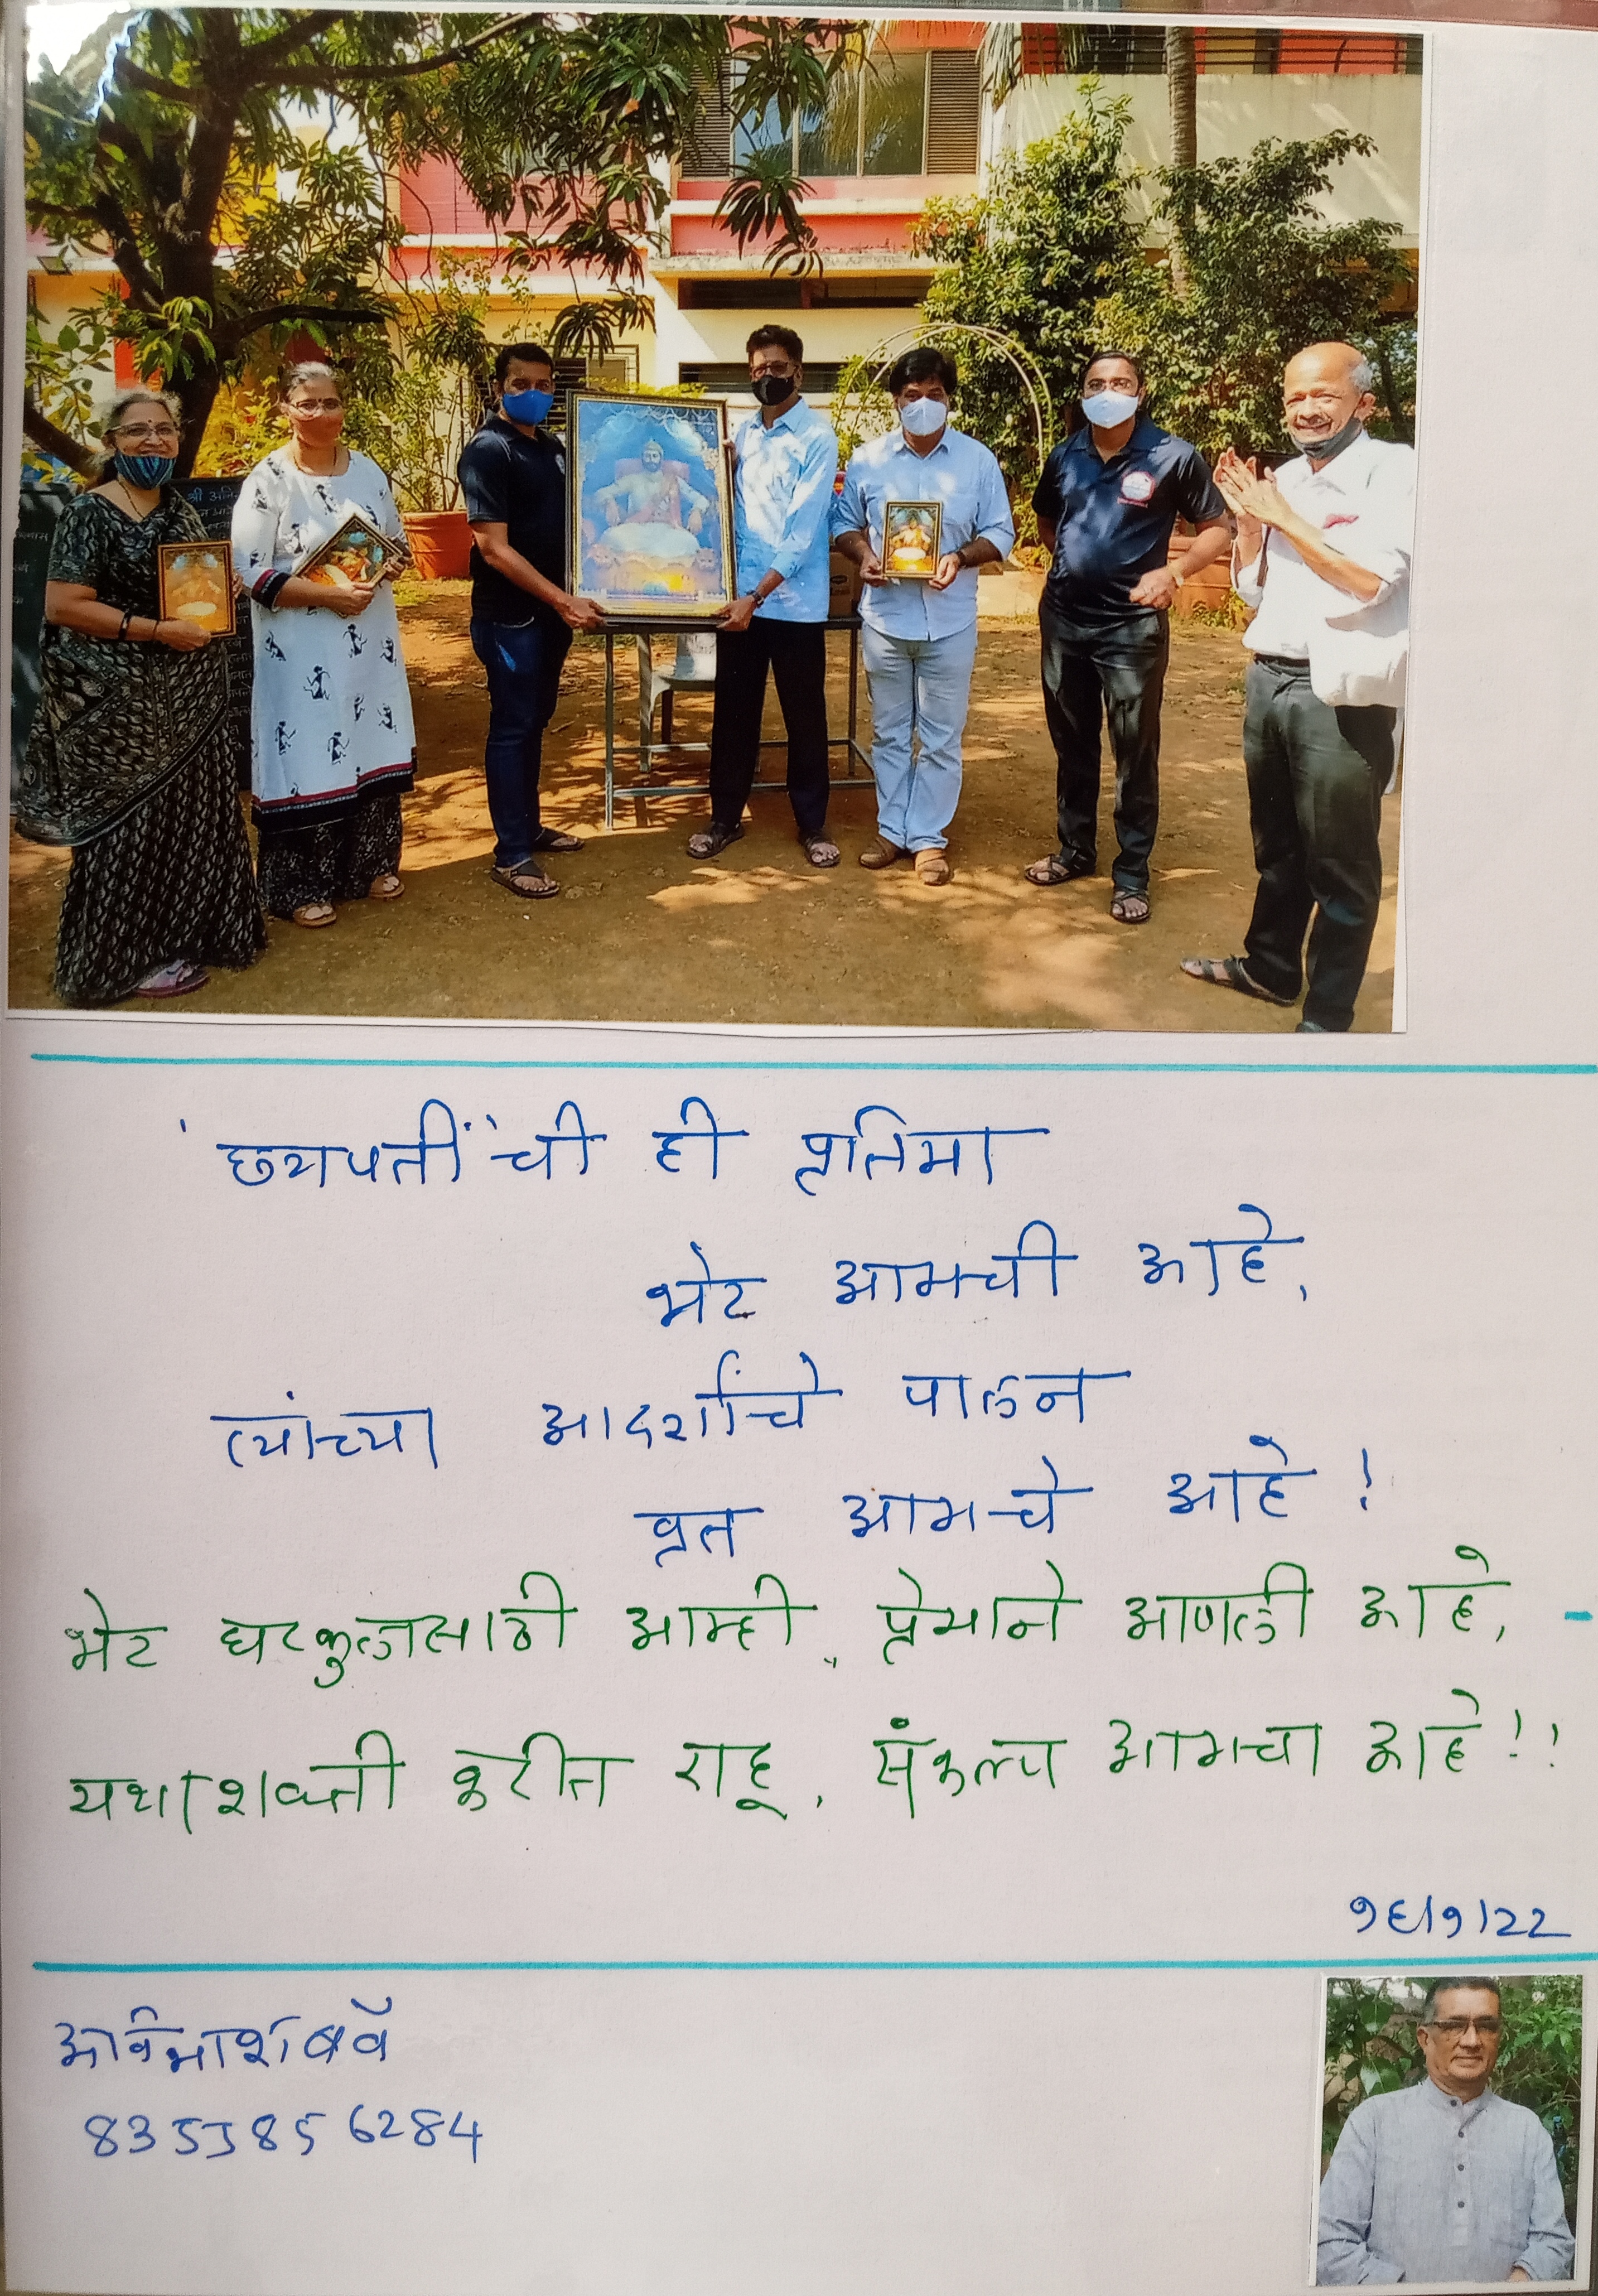 श्री अनि
'छत्रपतीं'ची ही प्रतिमा
भेट आमची आहे,
त्यांच्या आदर्शांचे पालन
व्रत आमचे आहे!
भेट घरकुलासाठी आम्ही, प्रेमाने आणली आहे,
यथाशक्ती करीत राहू, संकल्प आमचा आहे!!
१६/१/22
अविनाश बर्वे
8355856284